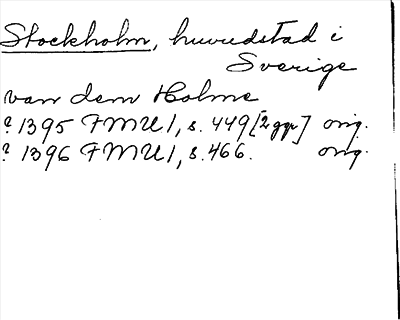 Stockholm, huvudstad i
Sverige
van dem Holme
? 1395 FMU I, s. 449 [2 ggr] orig.
? 1396 FMU I, s. 466. orig.